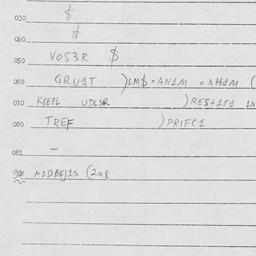 030 $
040 $
050 VOS3R $
060 GRU1T )1M$=AN1M =AH1M (
070 KLEPL UDL3R )RES+1T1 1N
080 TREF )PRIFC1
081 –
90 M1DBEJ1S (208